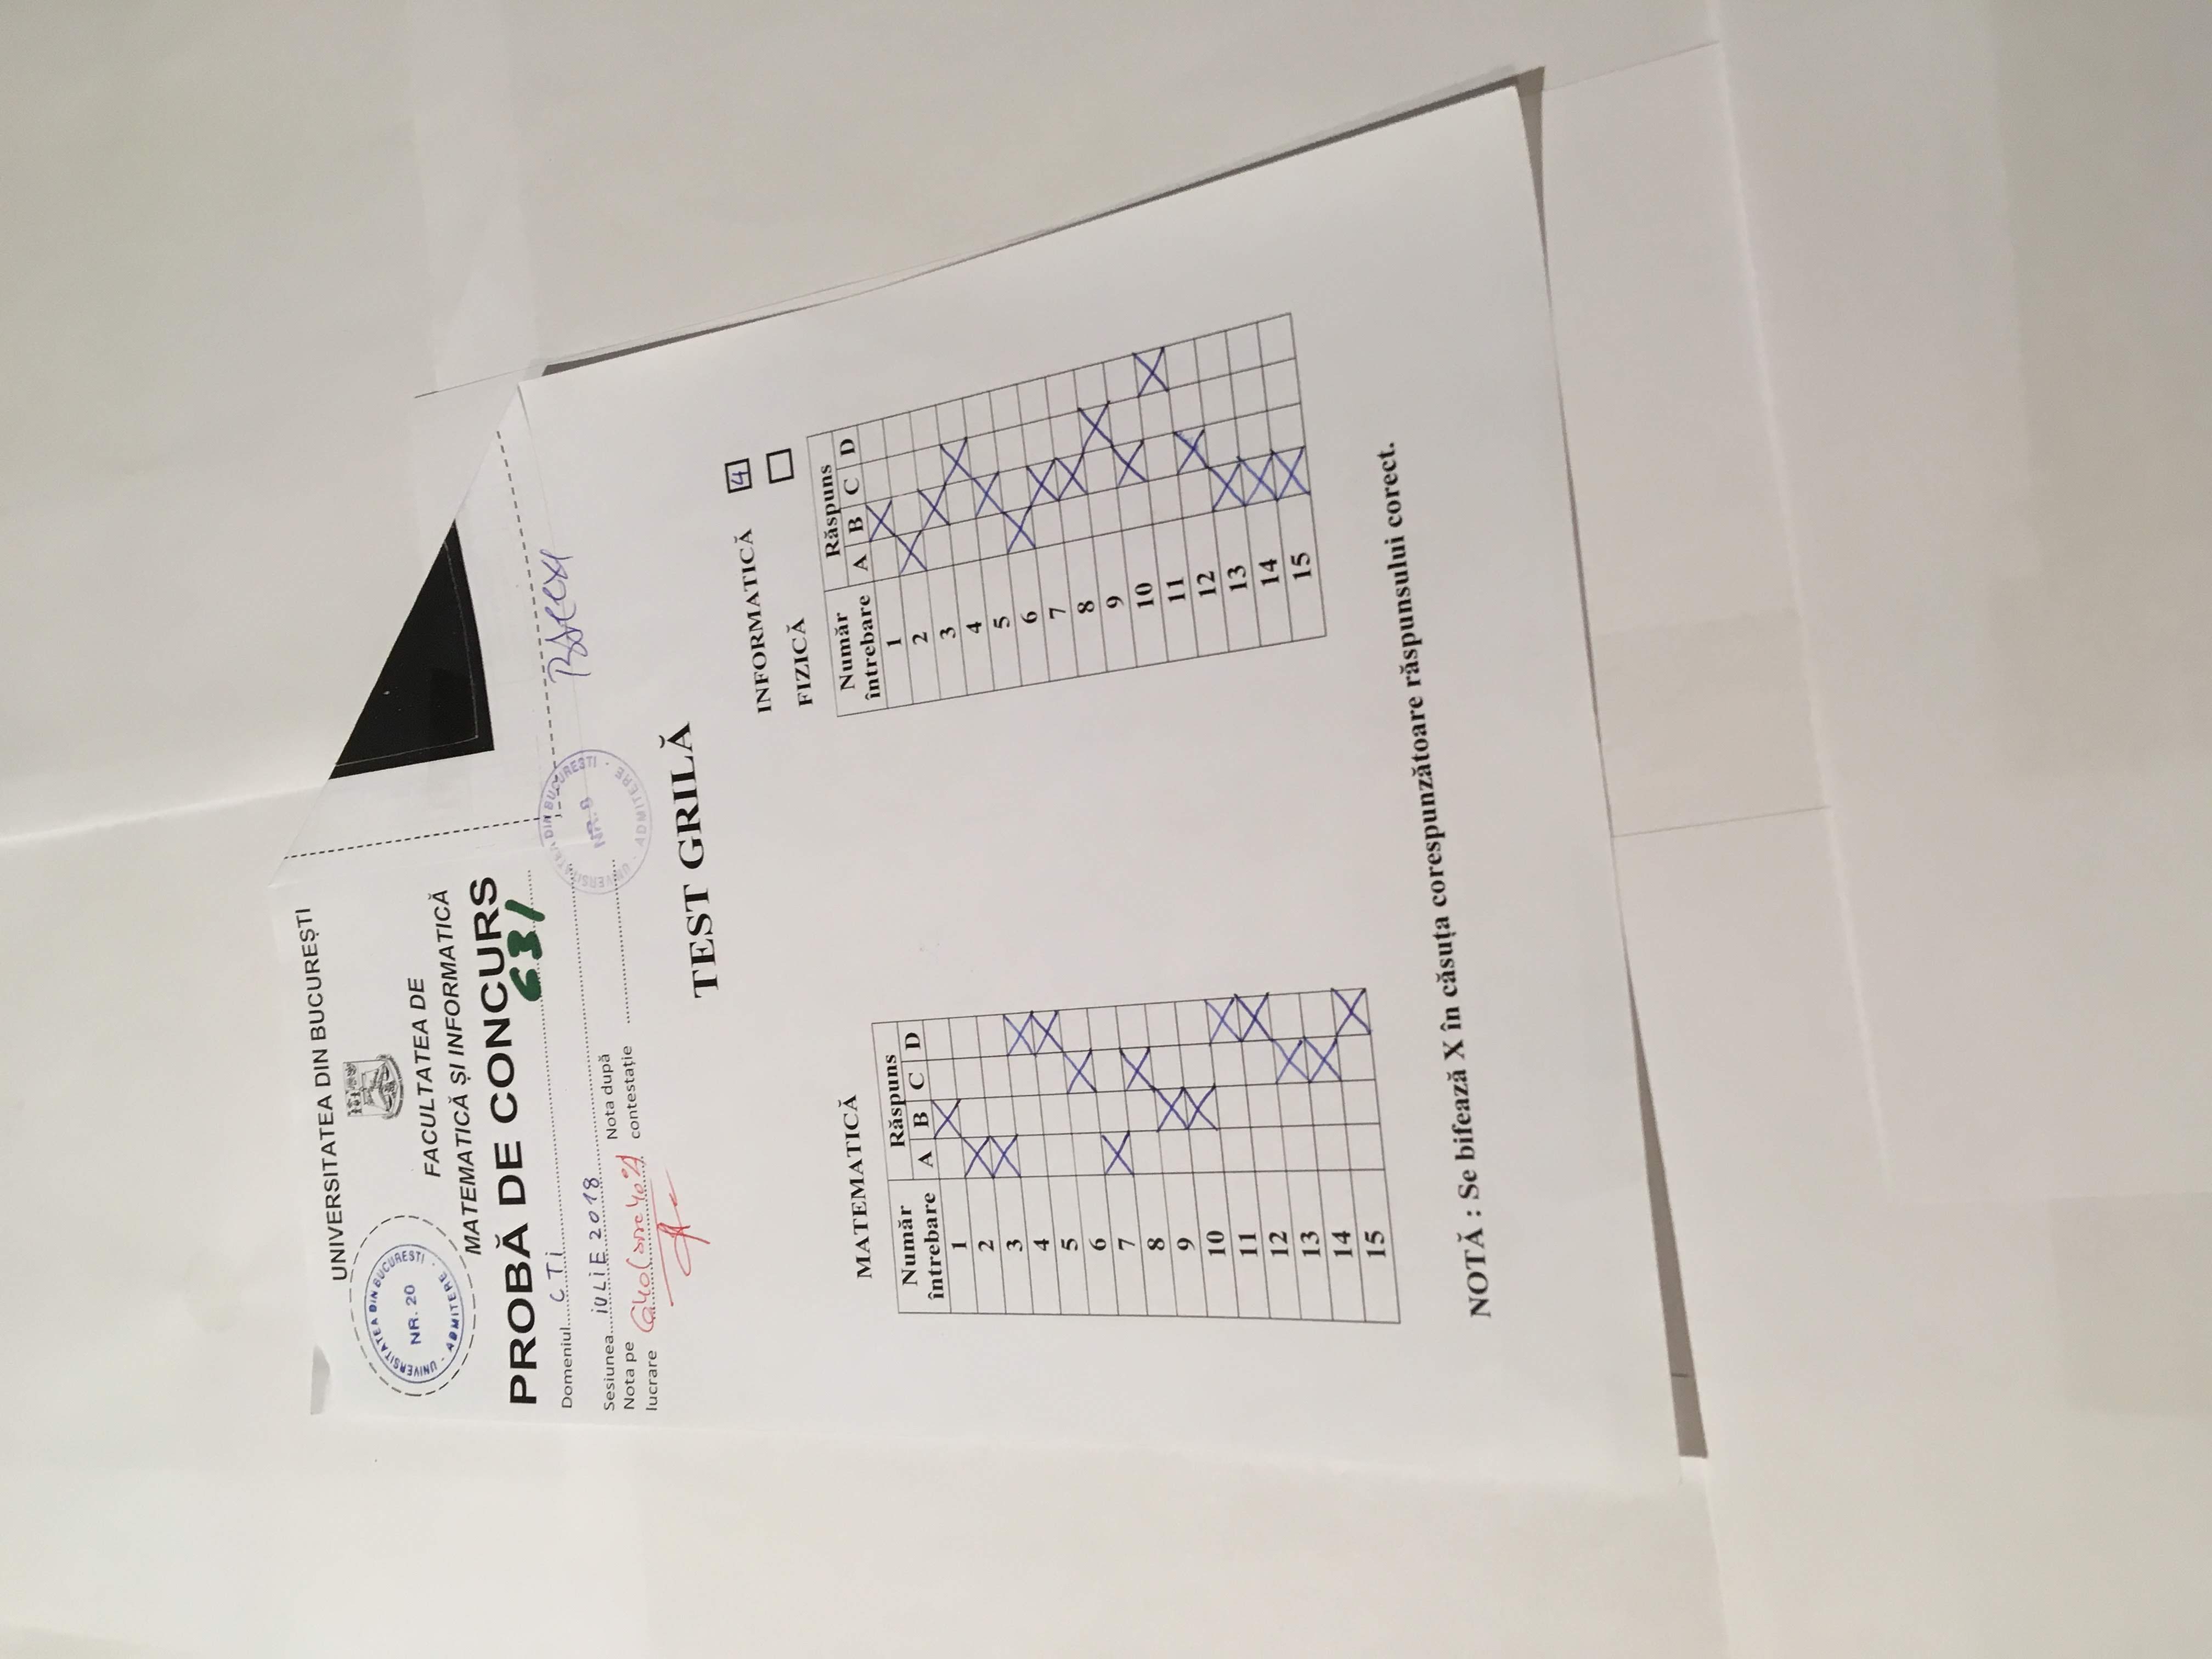 UNIVERSITATEA DIN BUCUREȘTI
UNIVERSITATEA DIN BUCUREȘTI
NR. 20
ADMITERE
FACULTATEA DE
MATEMATICĂ ȘI INFORMATICĂ
PROBĂ DE CONCURS
631
Domeniul CTI
Sesiunea IULIE 2018
Nota pe lucrare
Nota după contestație
UNIVERSITATEA DIN BUCUREȘTI
ADMITERE
TEST GRILĂ
INFORMATICĂ 4
FIZICĂ
MATEMATICĂ
Număr întrebare Răspuns
A B C D
1 X
2 X
3 X
4 X
5 X
6 X
7 X
8 X
9 X
10 X
11 X
12 X
13 X
14 X
15 X
Număr întrebare Răspuns
A B C D
1 X
2 X
3 X
4 X
5 X
6 X
7 X
8 X
9 X
10 X
11 X
12 X
13 X
14 X
15 X
NOTĂ : Se bifează X în căsuța corespunzătoare răspunsului corect.